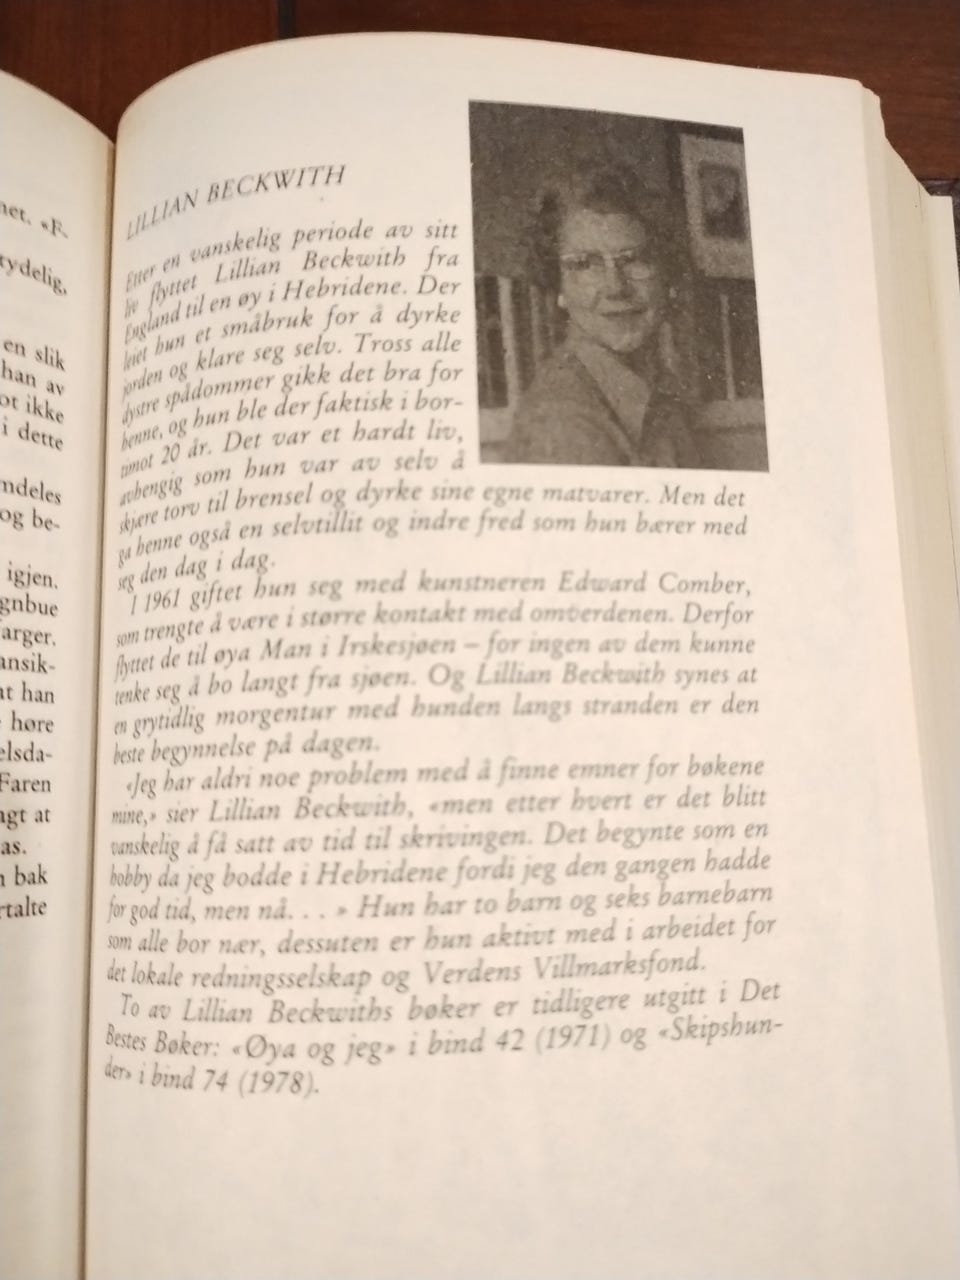 net. «F-
tydelig,
en slik
han av
ot ikke
i dette
ndeles
og be-
igjen.
gnbue
arger.
ansik-
at han
høre
elsda-
Faren
agt at
as.
n bak
rtalte
LILLIAN BECKWITH
Etter en vanskelig periode av sitt
liv flyttet Lillian Beckwith fra
England til en øy i Hebridene. Der
leiet hun et småbruk for å dyrke
jorden og klare seg selv. Tross alle
dystre spådommer gikk det bra for
henne, og hun ble der faktisk i bor-
timot 20 år. Det var et hardt liv,
avhengig som hun var av selv å
skjære torv til brensel og dyrke sine egne matvarer. Men det
ga henne også en selvtillit og indre fred som hun bærer med
seg den dag i dag.
I 1961 giftet hun seg med kunstneren Edward Comber,
som trengte å være i større kontakt med omverdenen. Derfor
flyttet de til øya Man i Irskesjøen – for ingen av dem kunne
tenke seg å bo langt fra sjøen. Og Lillian Beckwith synes at
en grytidlig morgentur med hunden langs stranden er den
beste begynnelse på dagen.
«Jeg har aldri noe problem med å finne emner for bøkene
mine,» sier Lillian Beckwith, «men etter hvert er det blitt
vanskelig å få satt av tid til skrivingen. Det begynte som en
hobby da jeg bodde i Hebridene fordi jeg den gangen hadde
for god tid, men nå. . . » Hun har to barn og seks barnebarn
som alle bor nær, dessuten er hun aktivt med i arbeidet for
det lokale redningsselskap og Verdens Villmarksfond.
To av Lillian Beckwiths bøker er tidligere utgitt i Det
Bestes Bøker: «Øya og jeg» i bind 42 (1971) og «Skipshun-
der» i bind 74 (1978).